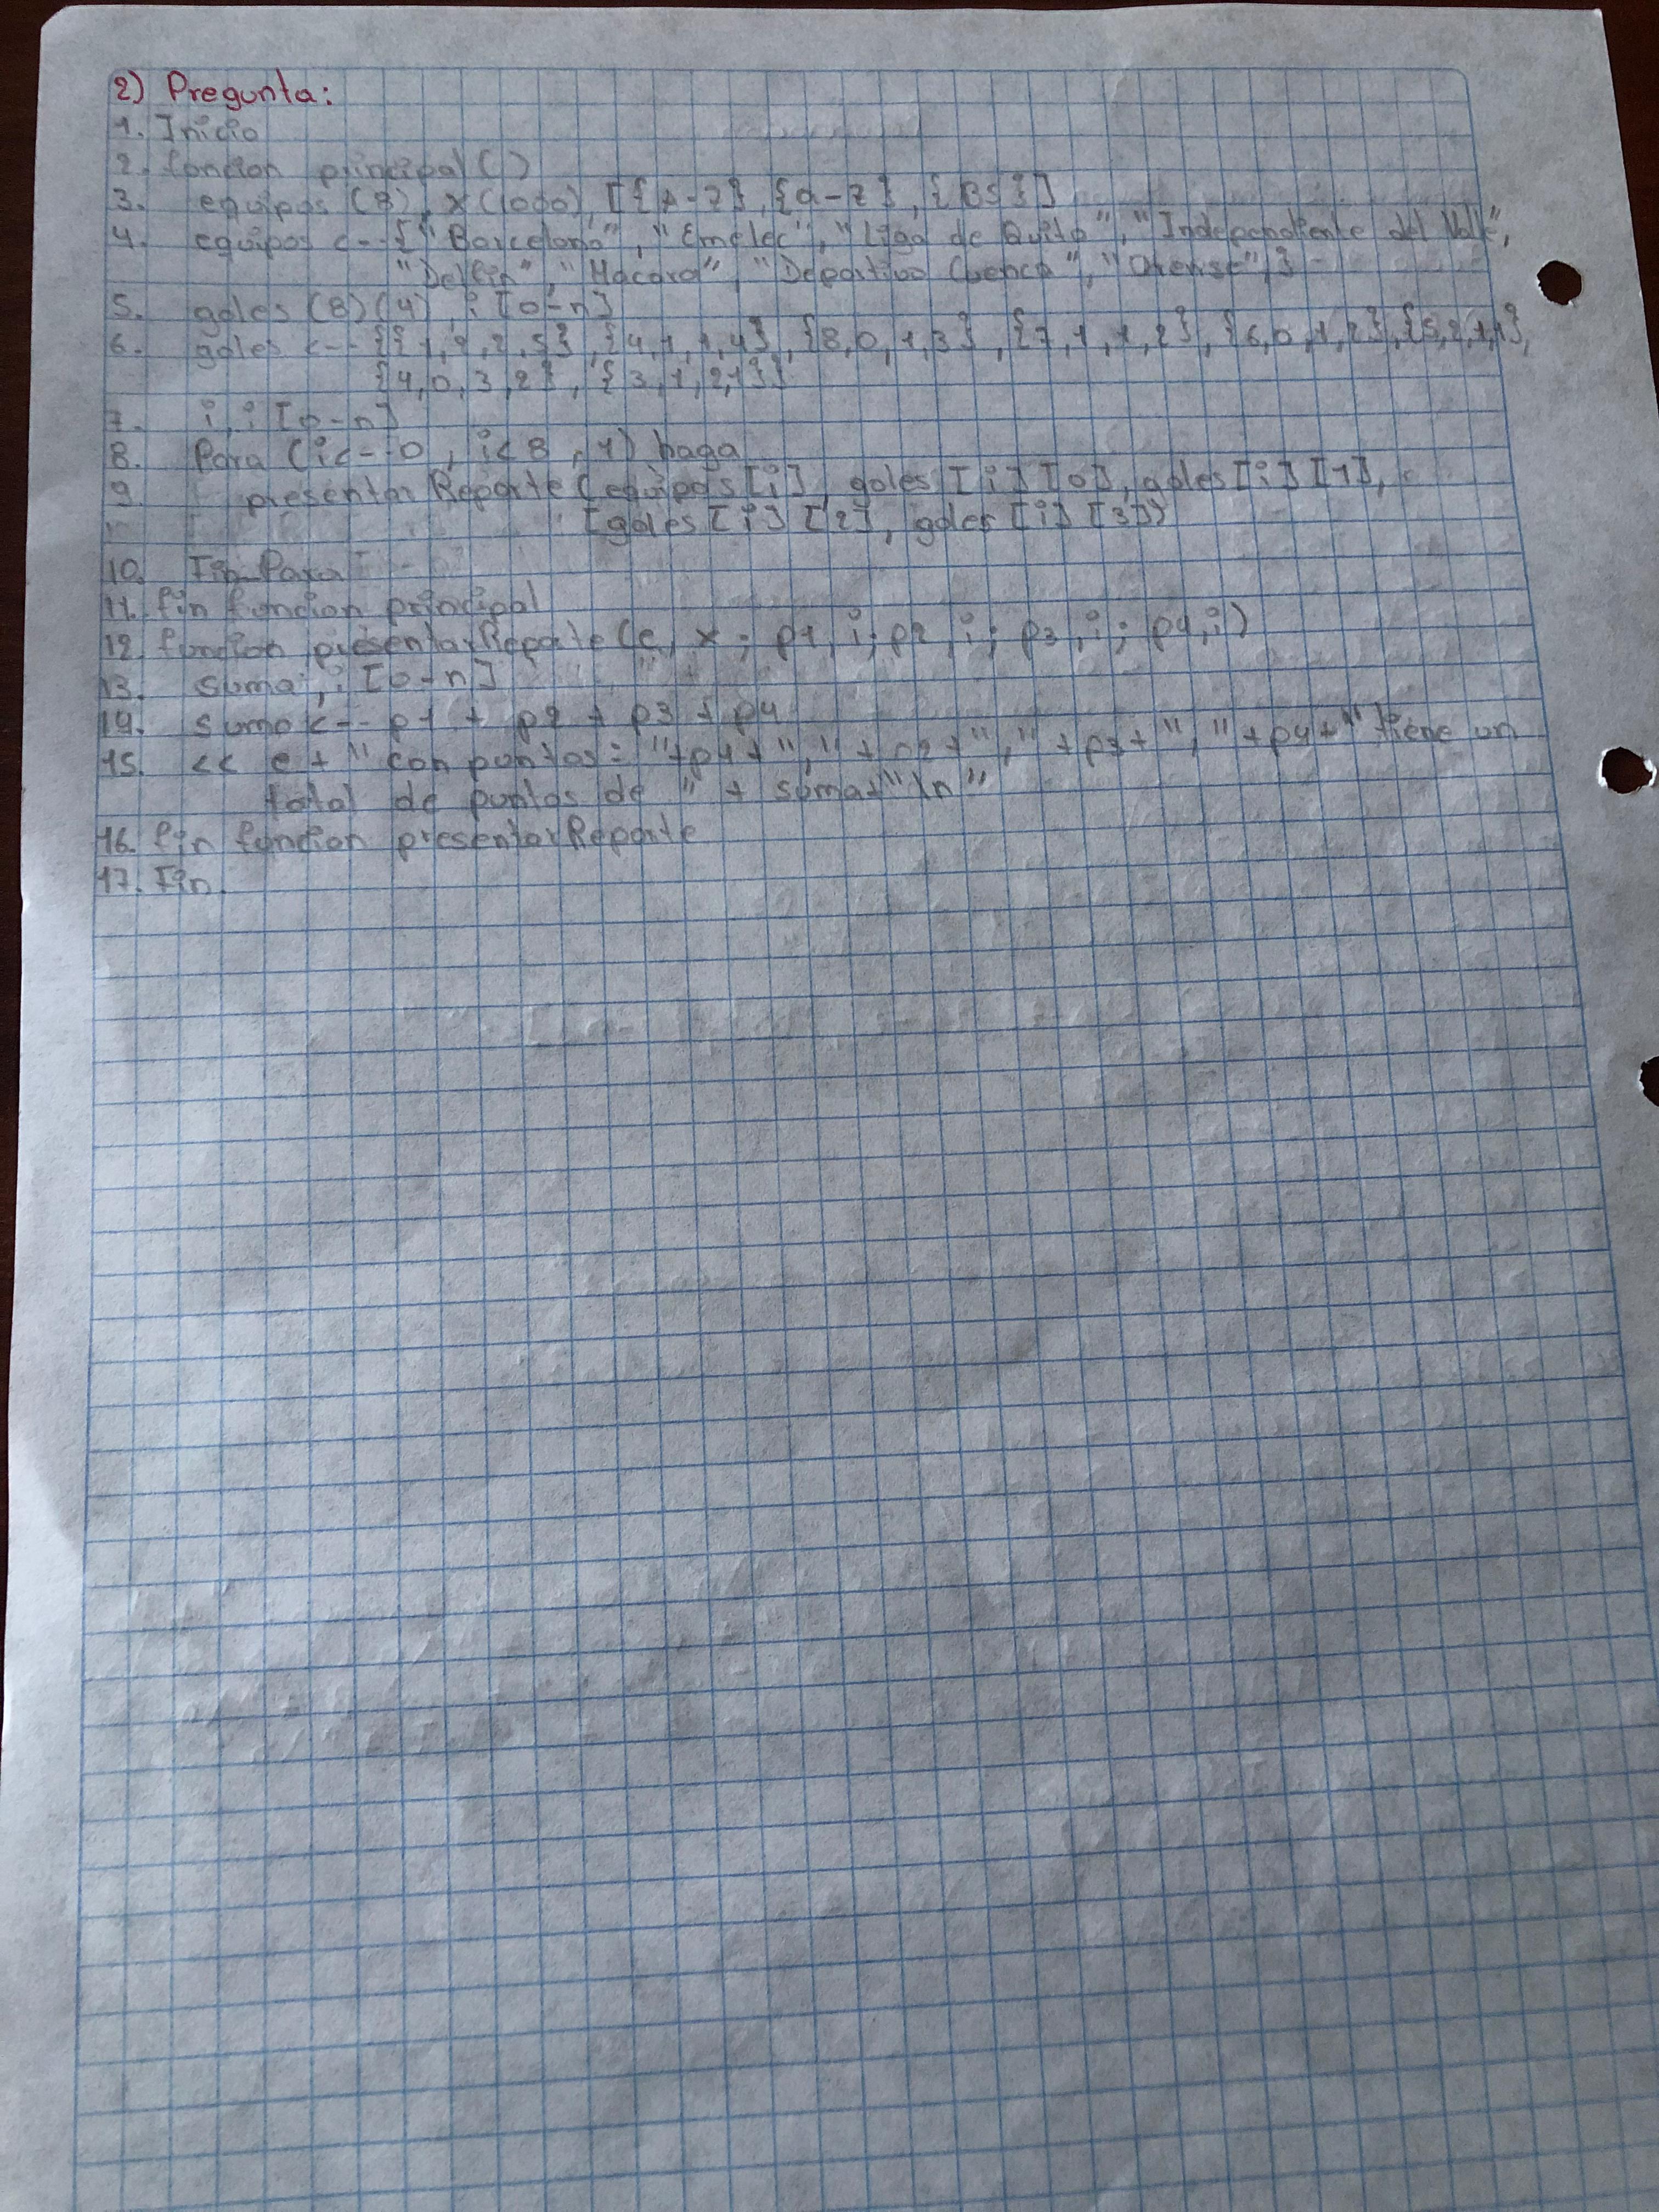 2) Pregunta:
1. Inicio
2. funcion principal()
3. equipos (8), x(1000), [{A-Z}, {a-z}, {BS}]
4. equipos <-- {"Barcelona", "Emelec", "Liga de Quito", "Independiente del Valle",
"Delfin", "Macara", "Deportivo Cuenca", "Orense",}
5. goles (8)(4), i [0-n]
6. goles <-- {{1,2,2,5}, {4,1,1,4}, {8,0,1,3}, {7,1,1,2}, {6,0,1,2}, {5,2,1,1},
{4,0,3,2}, {3,1,2,1}}
7. i, i [0-n]
8. Para (i<--0, i<8, 1) haga
9. presentarReporte (equipos[i], goles[i][0], goles[i][1],
[goles[i][2], goles[i][3])
10. Fin Para
11. fin funcion principal
12. funcion presentarReporte (e, x; p1, i; p2, i; p3, i; p4, i)
13. suma, i [0-n]
14. suma <-- p1 + p2 + p3 + p4
15. << e + " con puntos: "+p1+", "+p2+", "+p3+", "+p4+" tiene un
total de puntos de " + suma+"\n"
16. fin funcion presentarReporte
17. Fin.